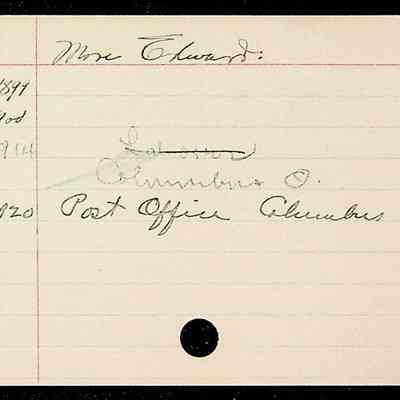 More Edward:
1899
914
Columbus O.
920 Post Office Columbus